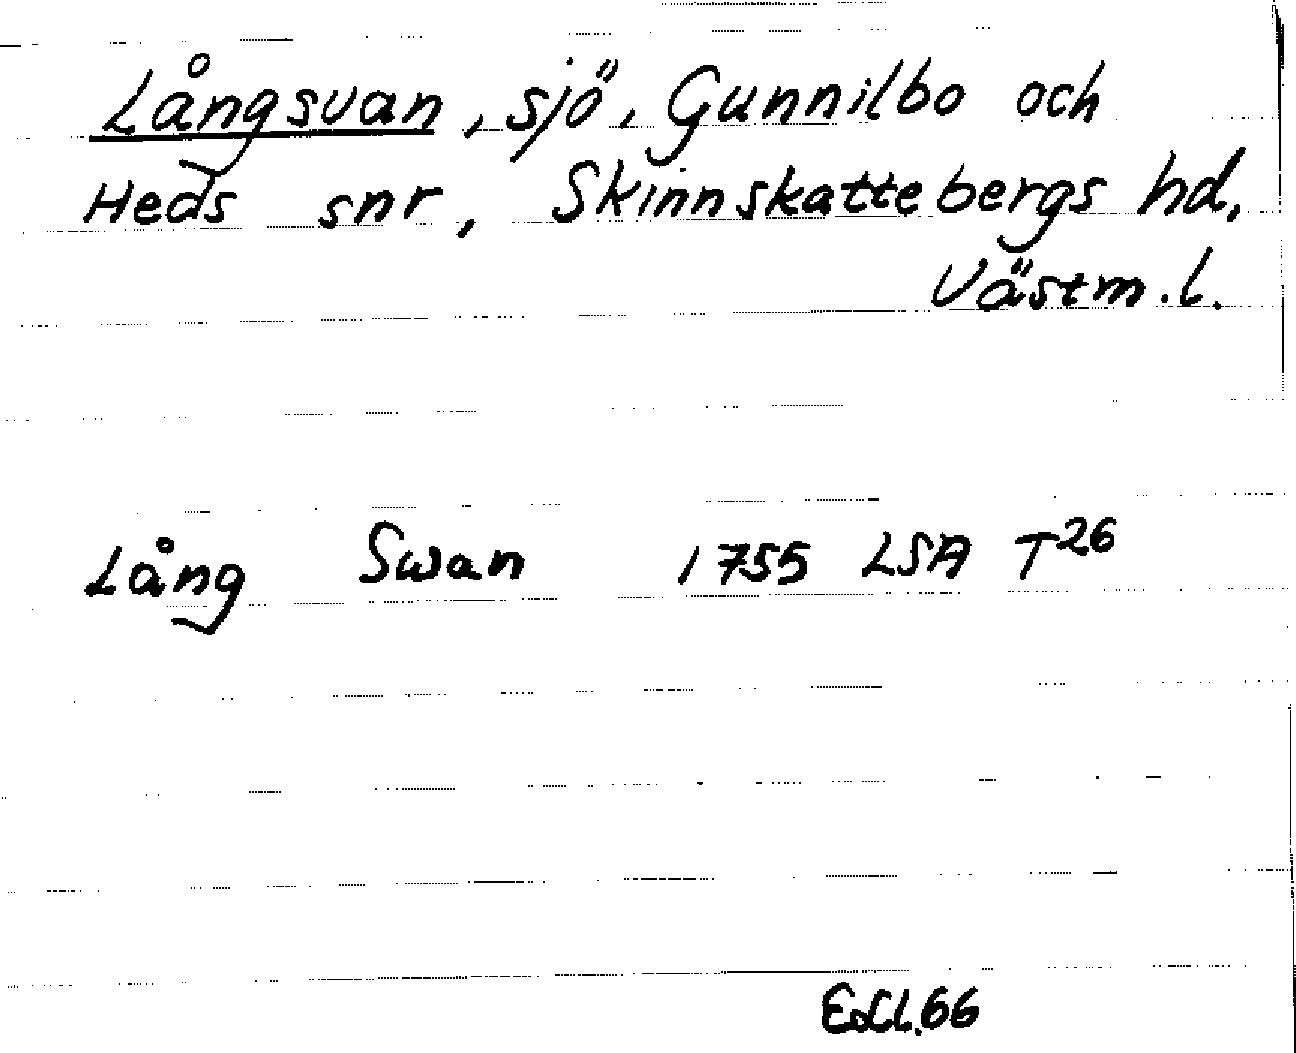 Långsvan, sjö, Gunnilbo och
Heds snr, Skinnskattebergs hd,
Västm.l.
Lång Swan 1755 LSA T26
66